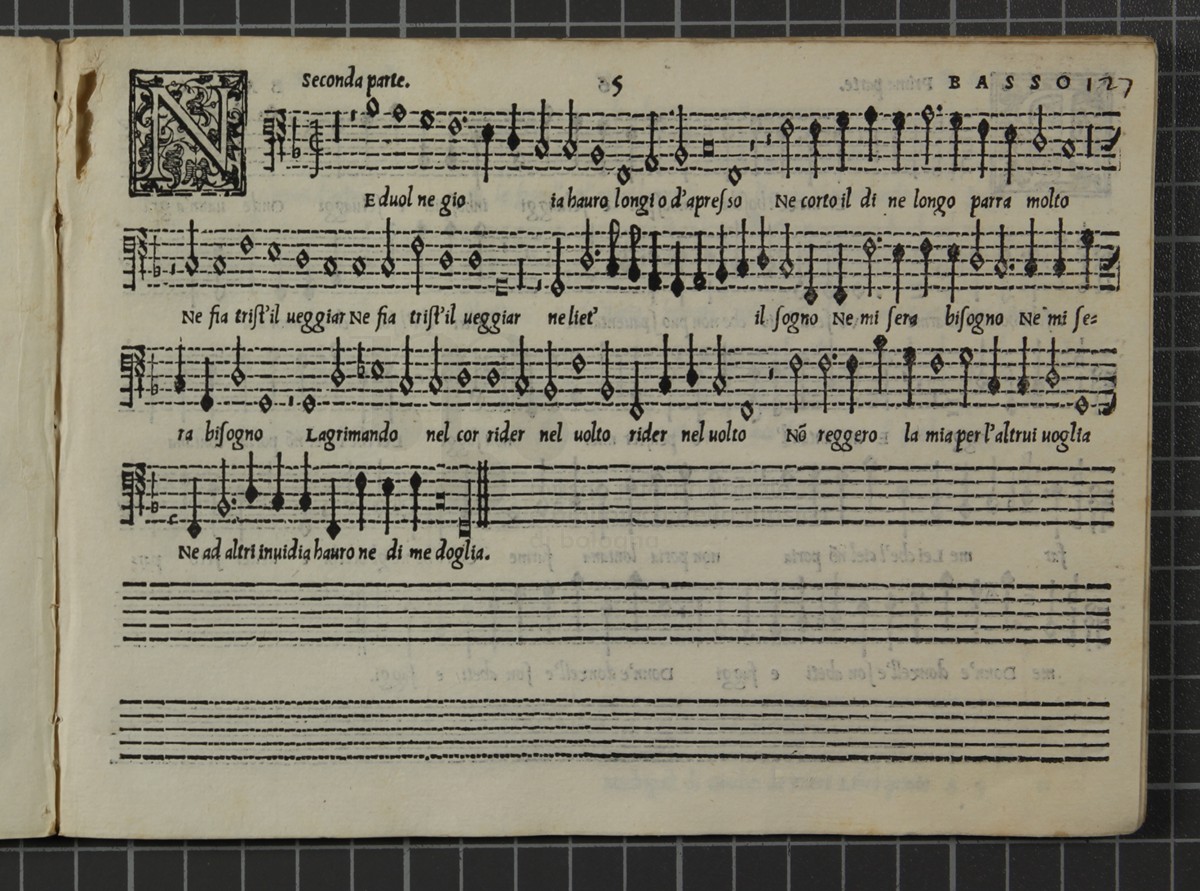 Seconda parte. 5 BASSO 127
NE duol ne gio ia hauro longi o d'apresso Ne corto il di ne longo parra molto
Ne fia trist'il ueggiar Ne fia trist'il ueggiar ne liet' il sogno Ne mi sera bisogno Ne mi se=
ra bisogno Lagrimando nel cor rider nel uolto rider nel uolto Nõ reggero la mia per l'altrui uoglia
Ne ad altri inuidia hauro ne di me doglia.